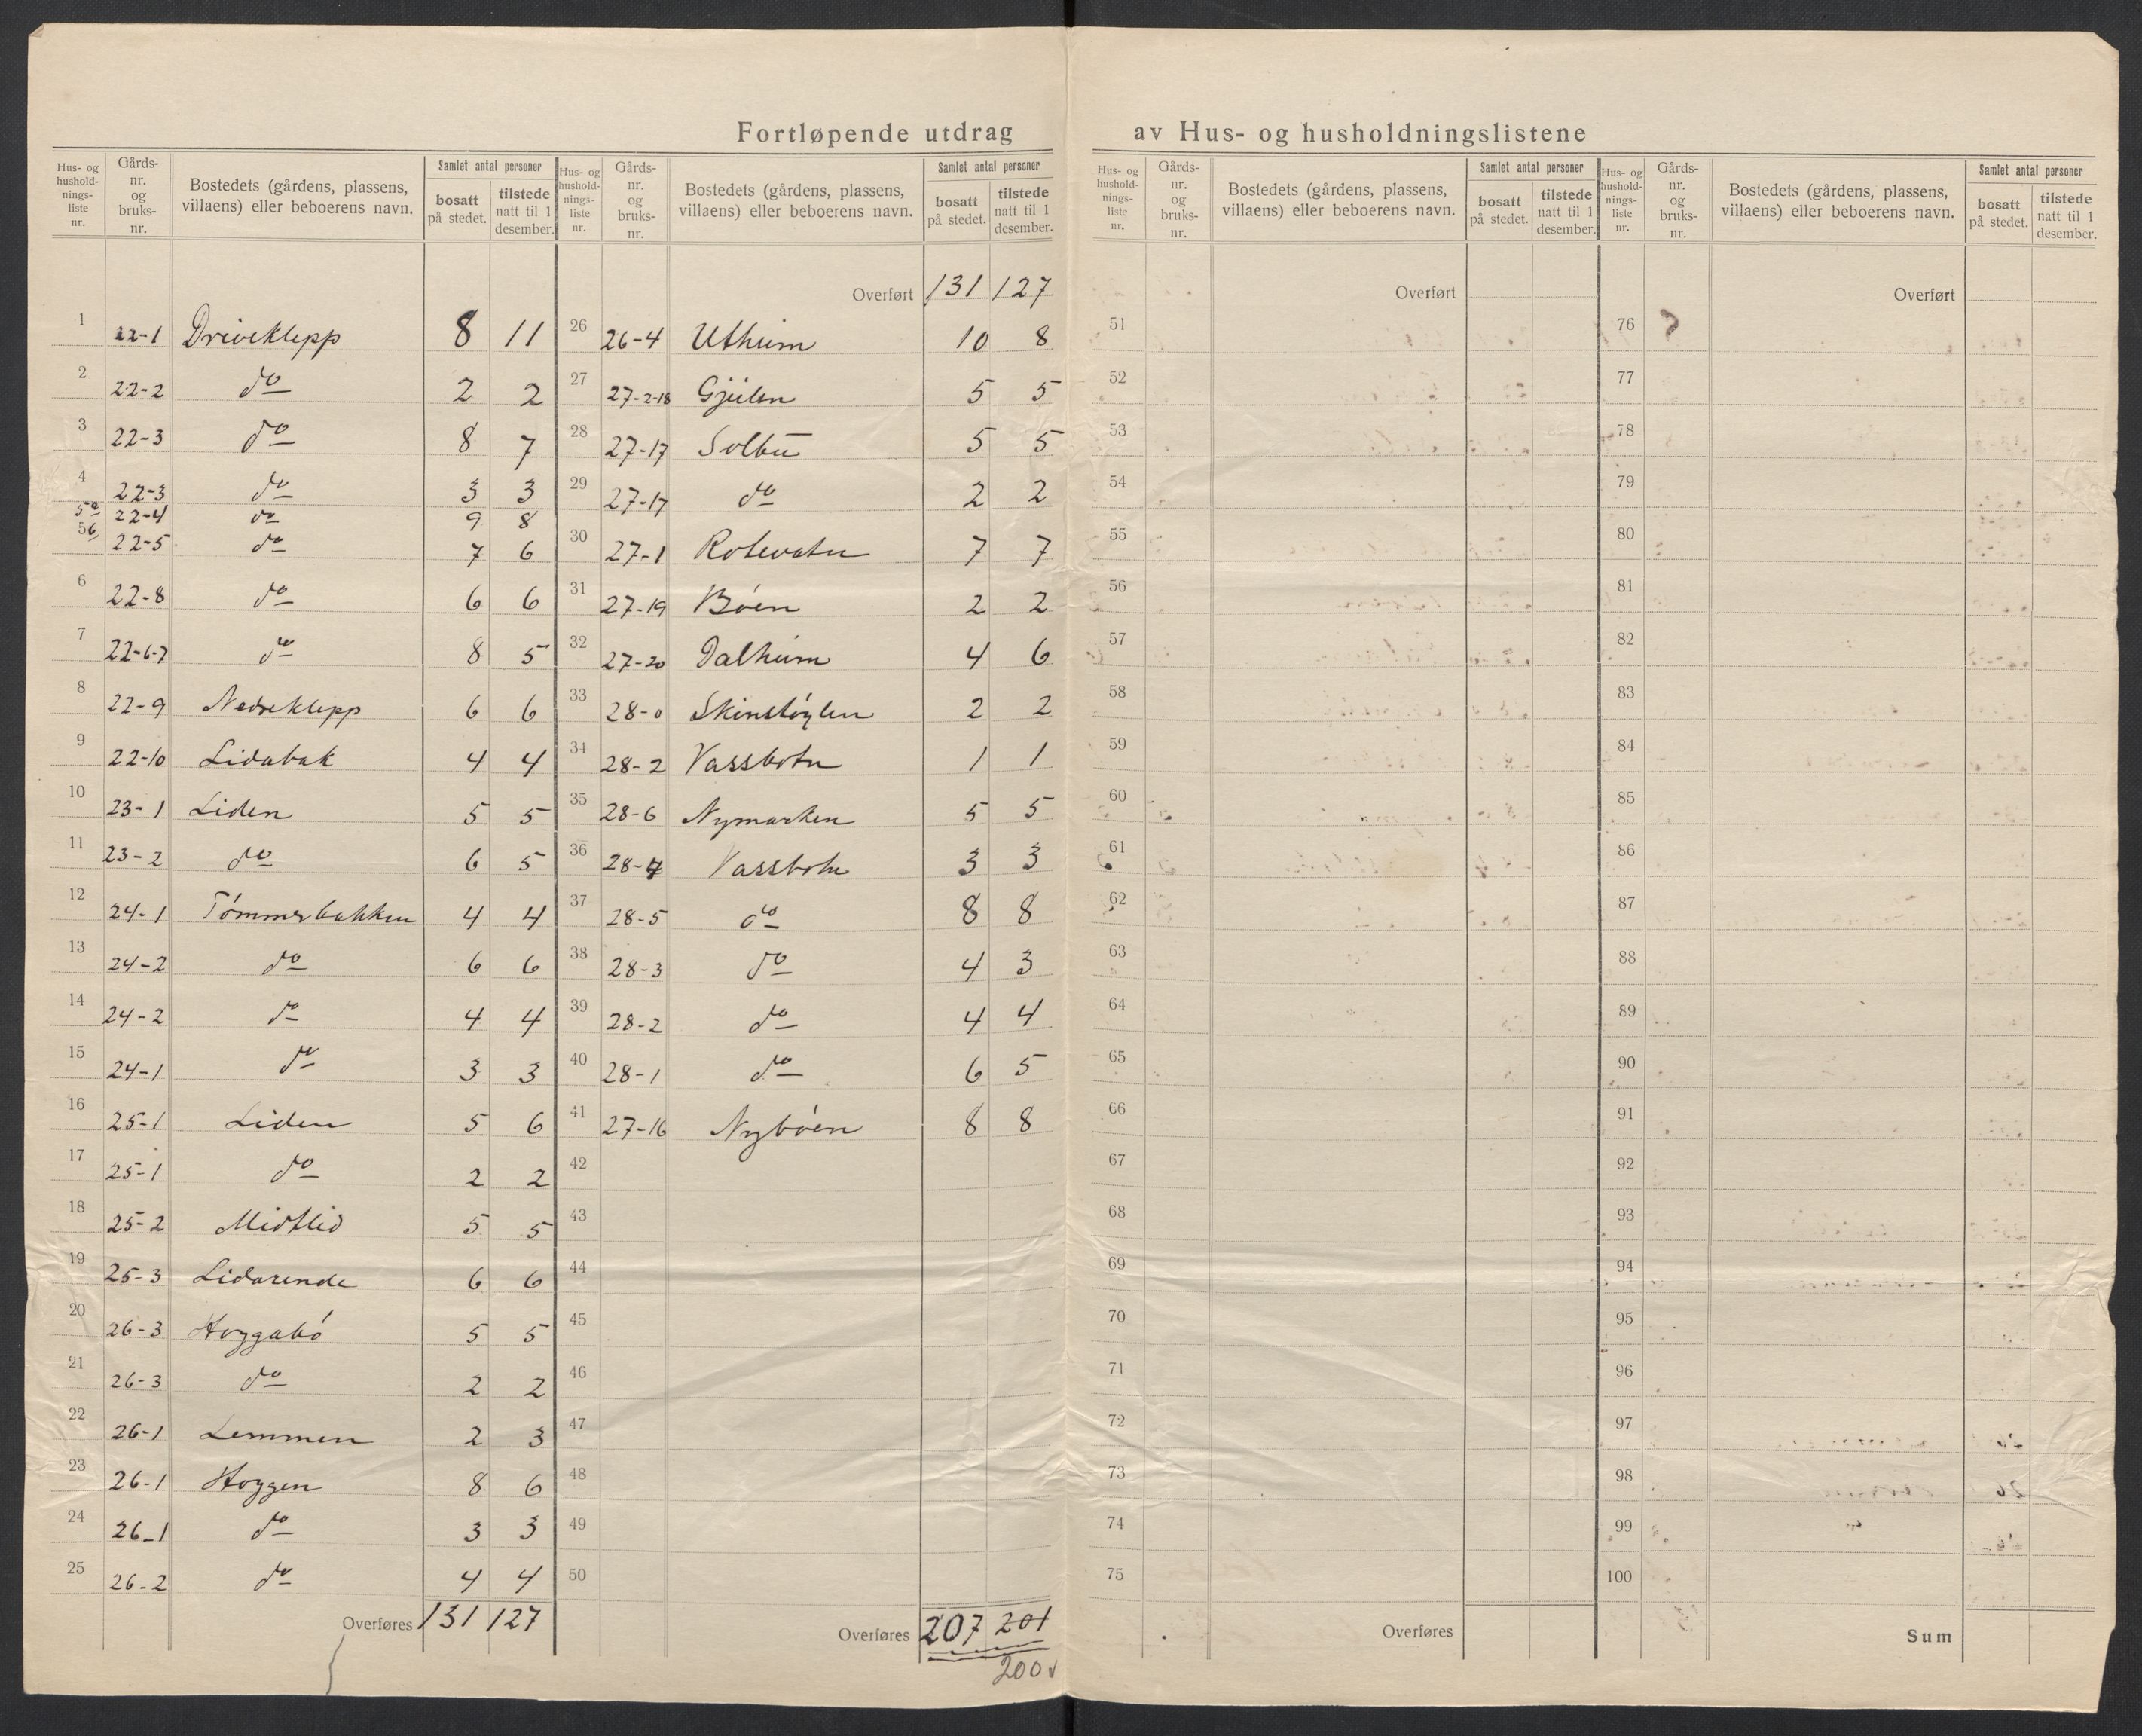 Fortløpende utdrag av Hus- og husholdningslistene
Hus- og hushold-nings-liste nr. Gårds-nr. og bruks-nr. Bostedets (gårdens, plassens, villaens) eller beboerens navn. Samlet antal personer bosatt på stedet. tilstede natt til 1 desember.
1 22-1 Driveklepp 8 11
2 22-2 do 2 2
3 22-3 do 8 7
4 22-3 do 3 3
5a 22-4 do 9 8
5b 22-5 do 7 6
6 22-8 do 6 6
7 22-6-7 do 8 5
8 22-9 Nedreklepp 6 6
9 22-10 Lidabak 4 4
10 23-1 Liden 5 5
11 23-2 do 6 5
12 24-1 Tómmerbakken 4 4
13 24-2 do 6 6
14 24-2 do 4 4
15 24-1 do 3 3
16 25-1 Liden 5 6
17 25-1 do 2 2
18 25-2 Midtlid 5 5
19 25-3 Lidarende 6 6
20 26-3 Hoggabó 5 5
21 26-3 do 2 2
22 26-1 Lemmen 2 3
23 26-1 Hoggen 8 6
24 26-1 do 3 3
25 26-2 do 4 4
Overføres 131 127
Hus- og hushold-nings-liste nr. Gårds-nr. og bruks-nr. Bostedets (gårdens, plassens, villaens) eller beboerens navn. Samlet antal personer bosatt på stedet. tilstede natt til 1 desember.
Overført 131 127
26 26-4 Utheim 10 8
27 27-2-18 Gjeilen 5 5
28 27-17 Solbu 5 5
29 27-17 do 2 2
30 27-1 Rotevatn 7 7
31 27-19 Bóen 2 2
32 27-20 Dalheim 4 6
33 28-0 Skinstóylen 2 2
34 28-2 Vassbotn 1 1
35 28-6 Nymarken 5 5
36 28-4 Vassbotn 3 3
37 28-5 do 8 8
38 28-3 do 4 3
39 28-2 do 4 4
40 28-1 do 6 5
41 27-16 Nybóen 8 8
42
43
44
45
46
47
48
49
50
Overføres 207 201
200 v
Hus- og hushold-nings-liste nr. Gårds-nr. og bruks-nr. Bostedets (gårdens, plassens, villaens) eller beboerens navn. Samlet antal personer bosatt på stedet. tilstede natt til 1 desember.
Overført
51
52
53
54
55
56
57
58
59
60
61
62
63
64
65
66
67
68
69
70
71
72
73
74
75
Overføres
Hus- og hushold-nings-liste nr. Gårds-nr. og bruks-nr. Bostedets (gårdens, plassens, villaens) eller beboerens navn. Samlet antal personer bosatt på stedet. tilstede natt til 1 desember.
Overført
76
77
78
79
80
81
82
83
84
85
86
87
88
89
90
91
92
93
94
95
96
97
98
99
100
Sum